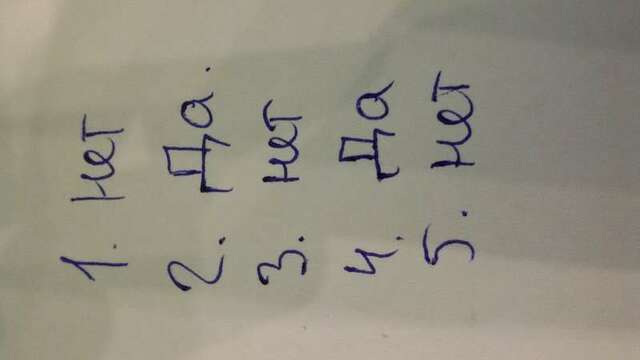 1. нет
2. Да.
3. нет
4. Да
5. нет